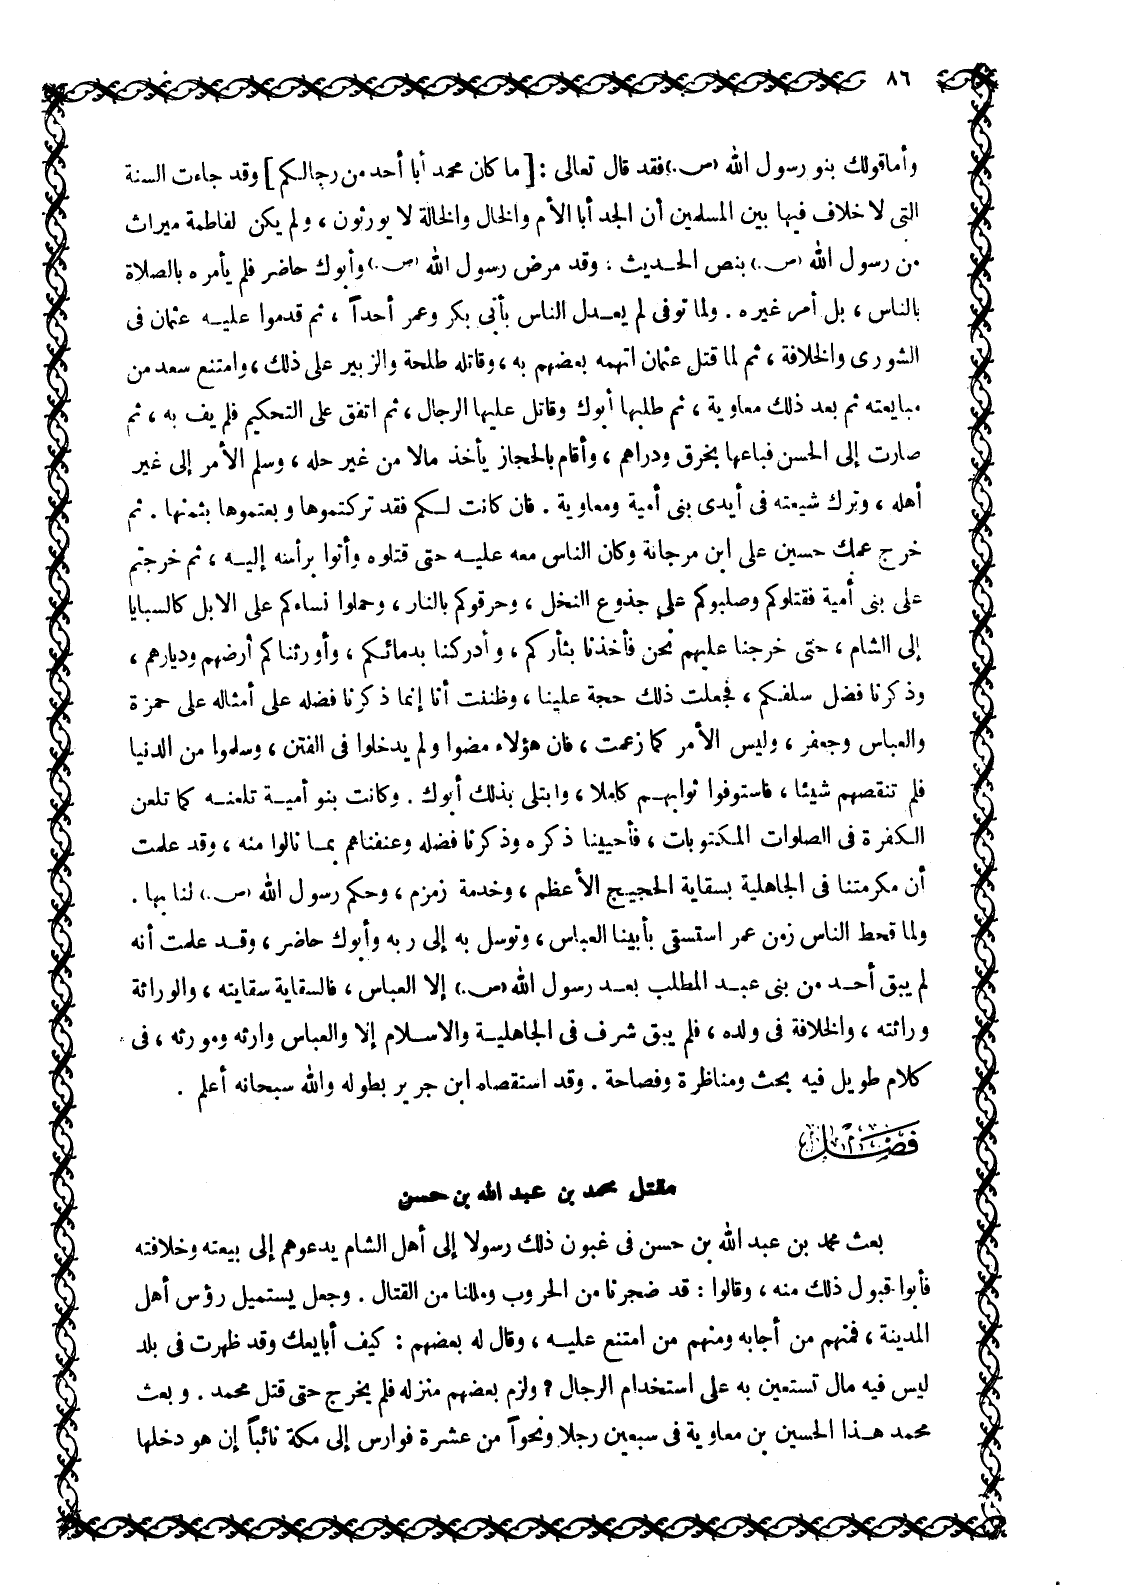 ٨٦
وأما قولك بنو رسول الله (ص.) فقد قال تعالى : [ ما كان محمد أبا أحد من رجالكم ] وقد جاءت السنة
التى لا خلاف فيها بين المسلمين أن الجد أبا الأم والخال والخالة لا يورثون ، ولم يكن لفاطمة ميراث
من رسول الله (ص.) بنص الحديث ، وقد مرض رسول الله (ص.) وأبوك حاضر فلم يأمره بالصلاة
بالناس ، بل أمر غيره . ولما توفى لم يعدل الناس بأبى بكر وعمر أحداً ، ثم قدموا عليه عثمان فى
الشورى والخلافة ، ثم لما قتل عثمان اتهمه بعضهم به ، وقاتله طلحة والزبير على ذلك ، وامتنع سعد من
مبايعته ثم بعد ذلك معاوية ، ثم طلبها أبوك وقاتل عليها الرجال ، ثم اتفق على التحكيم فلم يف به ، ثم
صارت إلى الحسن فباعها بخرق ودراهم ، وأقام بالحجاز يأخذ مالا من غير حله ، وسلم الأمر إلى غير
أهله ، وترك شيعته فى أيدى بنى أمية ومعاوية . فان كانت لكم فقد تركتموها وبعتموها بثمنها . ثم
خرج عمك حسين على ابن مرجانة وكان الناس معه عليه حتى قتلوه وأتوا برأسه إليه ، ثم خرجتم
على بنى أمية فقتلوكم وصلبوكم على جذوع النخل ، وحرقوكم بالنار ، وحملوا نساءكم على الابل كالسبايا
إلى الشام ، حتى خرجنا عليهم نحن فأخذنا بثأركم ، وأدركنا بدمائكم ، وأورثناكم أرضهم وديارهم ،
وذكرنا فضل سلفكم ، فجعلت ذلك حجة علينا ، وظننت أنا إنما ذكرنا فضله على أمثاله على حمزة
والعباس وجعفر ، وليس الأمر كما زعمت ، فان هؤلاء مضوا ولم يدخلوا فى الفتن ، وسلموا من الدنيا
فلم تنقصهم شيئا ، فاستوفوا ثوابهم كاملا ، وابتلى بذلك أبوك . وكانت بنو أمية تلعنه كما تلعن
الكفرة فى الصلوات المكتوبات ، فأحيينا ذكره وذكرنا فضله وعنفناهم بما نالوا منه ، وقد علمت
أن مكرمتنا فى الجاهلية بسقاية الحجيج الأعظم ، وخدمة زمزم ، وحكم رسول الله (ص.) لنا بها .
ولما قحط الناس زمن عمر استسقى بأبينا العباس ، وتوسل به إلى ربه وأبوك حاضر ، وقد علمت أنه
لم يبق أحد من بنى عبد المطلب بعد رسول الله (ص.) إلا العباس ، فالسقاية سقايته ، والوراثة
وراثته ، والخلافة فى ولده ، فلم يبق شرف فى الجاهلية والاسلام إلا والعباس وارثه ومورثه ، فى
كلام طويل فيه بحث ومناظرة وفصاحة . وقد استقصاه ابن جرير بطوله والله سبحانه أعلم .
فصل
مقتل محمد بن عبد الله بن حسن
بعث محمد بن عبد الله بن حسن فى غبون ذلك رسولا إلى أهل الشام يدعوهم إلى بيعته وخلافته
فأبوا قبول ذلك منه ، وقالوا : قد ضجرنا من الحروب ومللنا من القتال . وجعل يستميل رؤس أهل
المدينة ، فمنهم من أجابه ومنهم من امتنع عليه ، وقال له بعضهم : كيف أبايعك وقد ظهرت فى بلد
ليس فيه مال تستعين به على استخدام الرجال ؟ ولزم بعضهم منزله فلم يخرج حتى قتل محمد . وبعث
محمد هذا الحسين بن معاوية فى سبعين رجلا ونحواً من عشرة فوارس إلى مكة نائباً إن هو دخلها